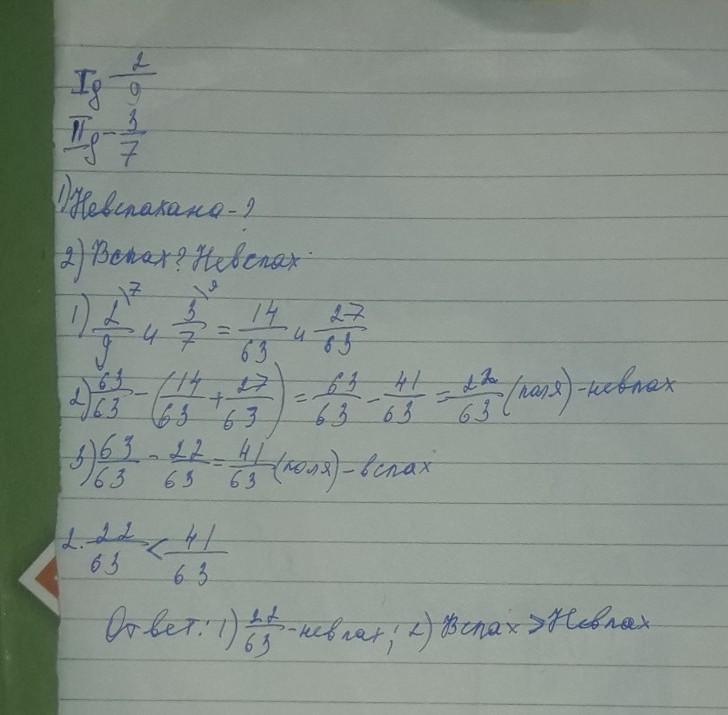 I д - 2/9
II д - 3/7
1) Невспахана - ?
2) Вспах ? Невспах
1) 2/9 \7 и 3/7 \9 = 14/63 и 27/63
2) 63/63 - (14/63 + 27/63) = 63/63 - 41/63 = 22/63 (поля) - невпах
3) 63/63 - 22/63 = 41/63 (поля) - вспах
2. 22/63 < 41/63
Ответ: 1) 22/63 - невпах; 2) Вспах > Невпах